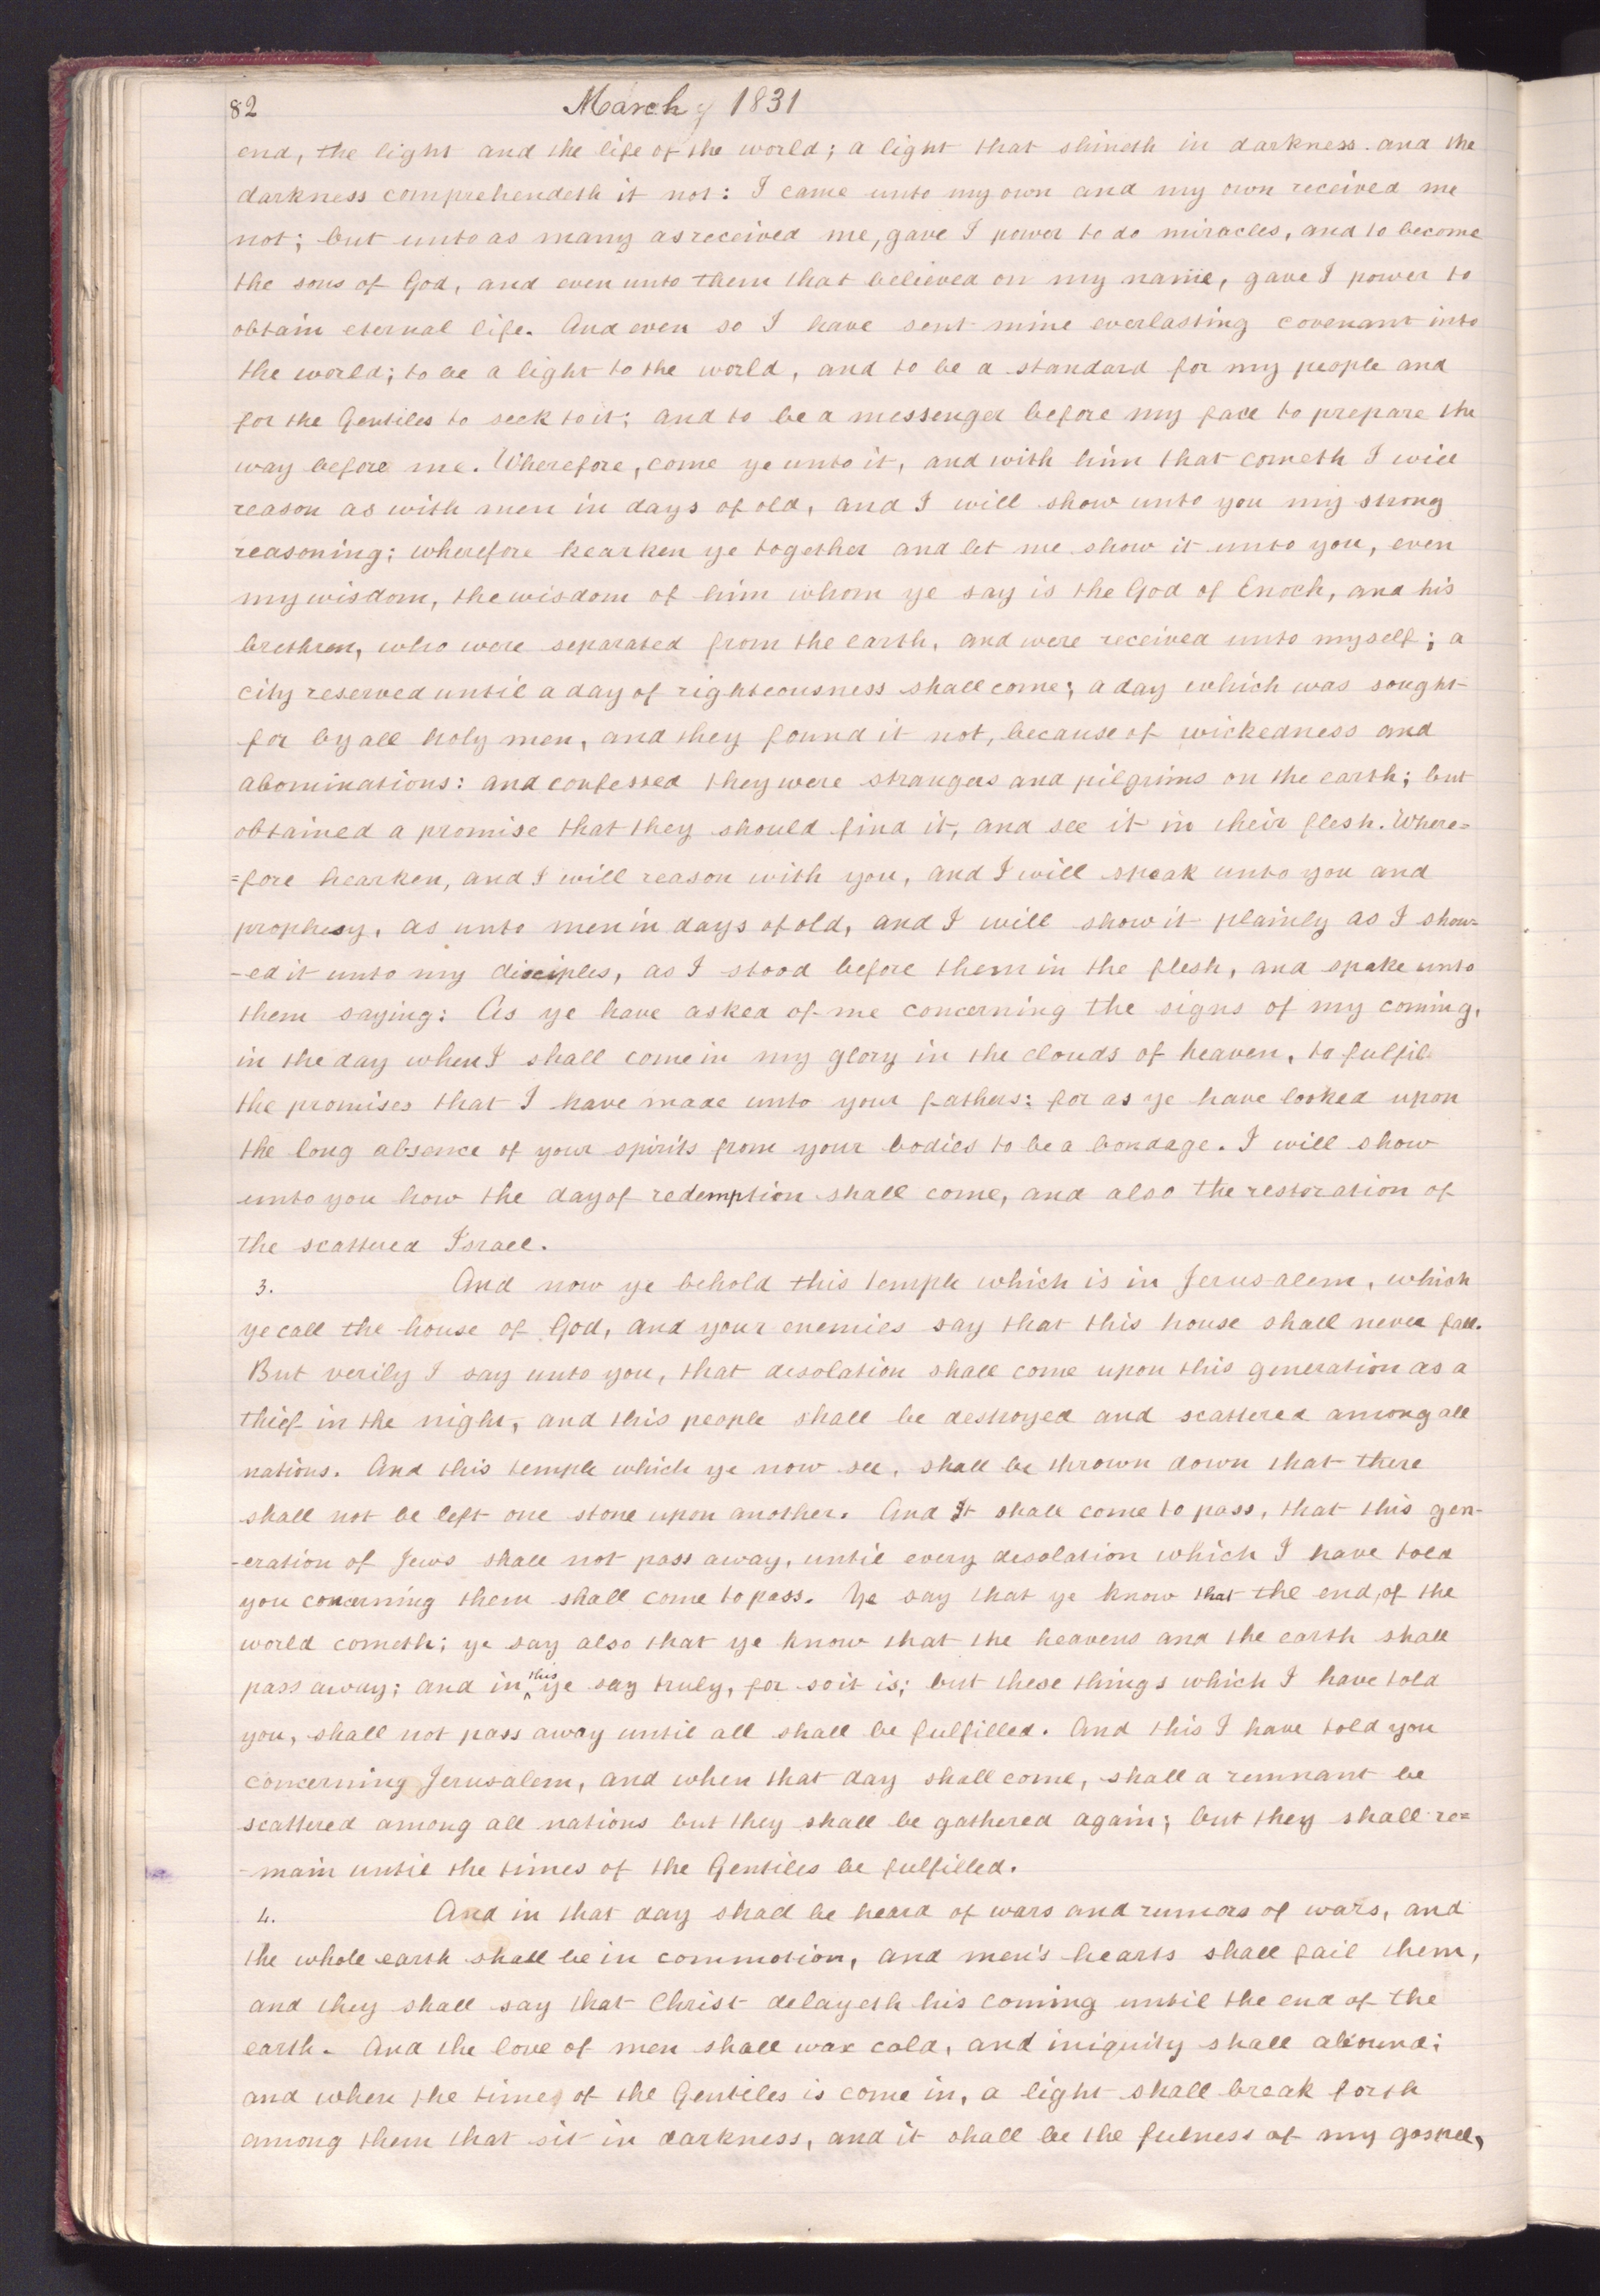 82
March, 1831
end, the light and the life of the world; a light that shineth in darkness. and the
darkness comprehendeth it not: I came unto my own and my own received me
not; but unto as many as received me, gave I power to do miracles, and to become
the sons of God, and even unto them that believed on my name, gave I power to
obtain eternal life. And even so I have sent mine everlasting covenant into
the world; to be a light to the world, and to be a standard for my people and
for the Gentiles to seek to it; and to be a messenger before my face to prepare the
way before me. Wherefore, come ye unto it, and with him that cometh I will
reason as with men in days of old, and I will show unto you my strong
reasoning; wherefore hearken ye together and let me show it unto you, even
my wisdom, the wisdom of him whom ye say is the God of Enoch, and his
brethren, who were separated from the earth, and were received unto myself; a
city reserved until a day of righteousness shall come; a day which was sought
for by all holy men, and they found it not, because of wickedness and
abominations: and confessed they were strangers and pilgrims on the earth; but
obtained a promise that they should find it, and see it in their flesh. Where=
=fore hearken, and I will reason with you, and I will speak unto you and
prophesy, as unto men in days of old, and I will show it plainly as I show-
-ed it unto my disciples, as I stood before them in the flesh, and spake unto
them saying: As ye have asked of me concerning the signs of my coming,
in the day when I shall come in my glory in the clouds of heaven, to fulfil
the promises that I have made unto your fathers: for as ye have looked upon
the long absence of your spirits from your bodies to be a bondage. I will show
unto you how the day of redemption shall come, and also the restoration of
the scattered Israel.
3. And now ye behold this temple which is in Jerusalem, which
ye call the house of God, and your enemies say that this house shall never fall.
But verily I say unto you, that desolation shall come upon this generation as a
thief in the night, and this people shall be destroyed and scattered among all
nations. And this temple which ye now see, shall be thrown down that there
shall not be left one stone upon another. And It shall come to pass, that this gen-
-eration of Jews shall not pass away, until every desolation which I have told
you concerning them shall come to pass. Ye say that ye know that the end, of the
world cometh; ye say also that ye know that the heavens and the earth shall
pass away; and in this ye say truly, for so it is; but these things which I have told
you, shall not pass away until all shall be fulfilled. And this I have told you
concerning Jerusalem, and when that day shall come, shall a remnant be
scattered among all nations but they shall be gathered again; but they shall re=
-main until the times of the Gentiles be fulfilled.
4. And in that day shall be heard of wars and rumors of wars, and
the whole earth shall be in commotion, and men's hearts shall fail them,
and they shall say that Christ delayeth his coming until the end of the
earth. And the love of men shall wax cold, and iniquity shall abound;
and when the times of the Gentiles is come in, a light shall break forth
among them that sit in darkness, and it shall be the fulness of my gospel,